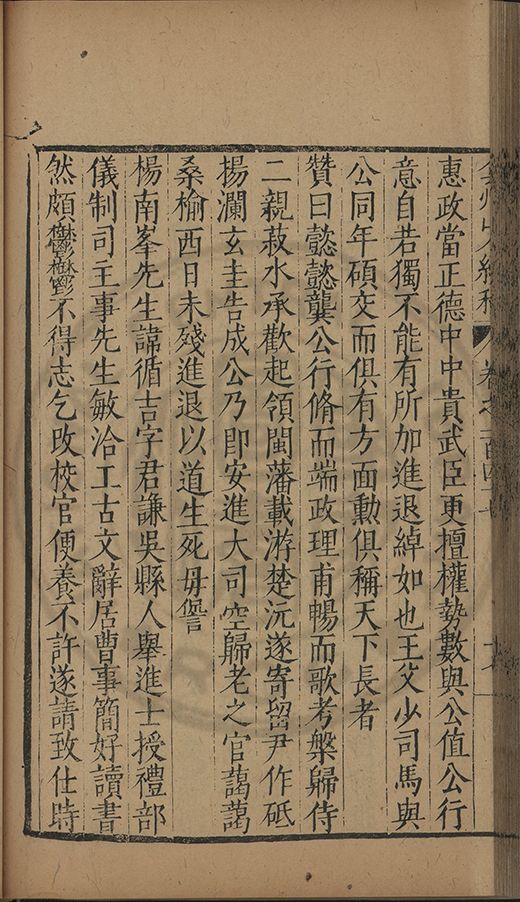 惠政當正德中中貴武臣更擅權勢數與公值公行
意自若獨不能有所加進退綽如也王父少司馬與
公同年碩交而俱有方面勳俱稱天下長者
贊曰懿懿龔公行脩而端政理甫暢而歌考槃歸侍
二親菽水承歡起領閩藩載游楚沅遂寄留尹作砥
揚瀾玄圭告成公乃即安進大司空歸老之官藹藹
桑榆西日未殘進退以道生死毋諐
楊南峯先生諱循吉字君謙吳縣人舉進士授禮部
儀制司主事先生敏洽工古文辭居曹事簡好讀書
然頗鬱鬱不得志乞改校官便養不許遂請致仕時